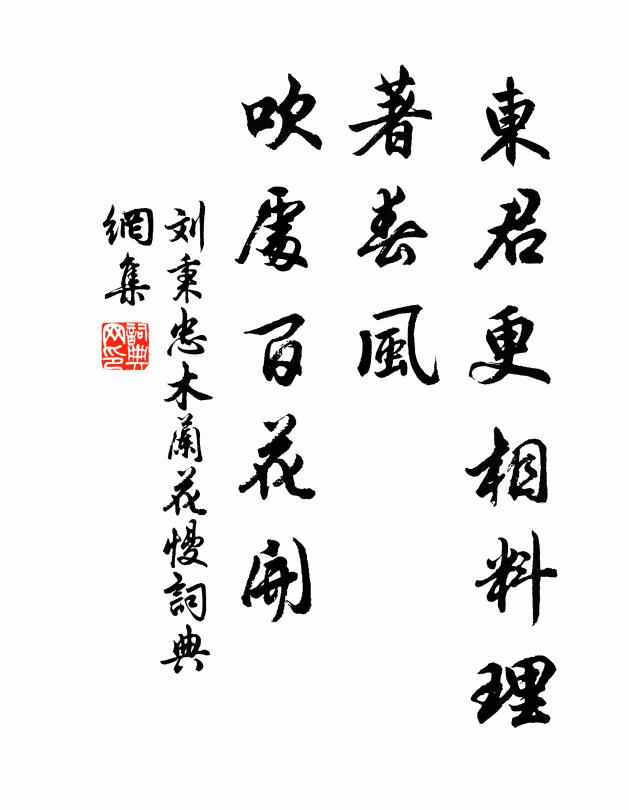 東君更相料理
著春風
吹處百花開
刘秉忠木蘭花慢詞典
網集
詞典
网印